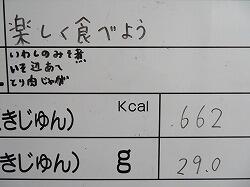 楽しく食べよう
いわしのみそ煮
いそ辺あて
とり肉じゃが
Kcal
きじゅん) .662
きじゅん) g 29.0